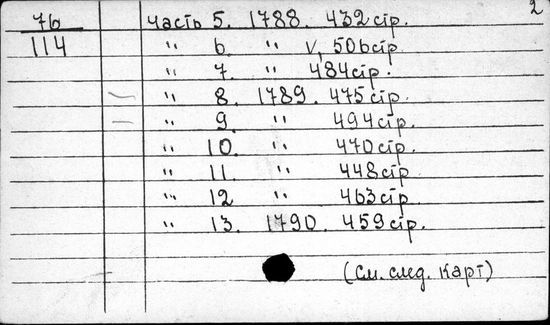 2
76 часть 5. 1788. 432стр.
114 " 6. " V, 506стр.
" 7. " 484стр.
— " 8. 1789. 475стр.
— " 9. " 494стр.
" 10. " 470стр.
" 11. " 448стр.
" 12 " 463стр.
" 13. 1790. 459стр.
(См. след. карт)